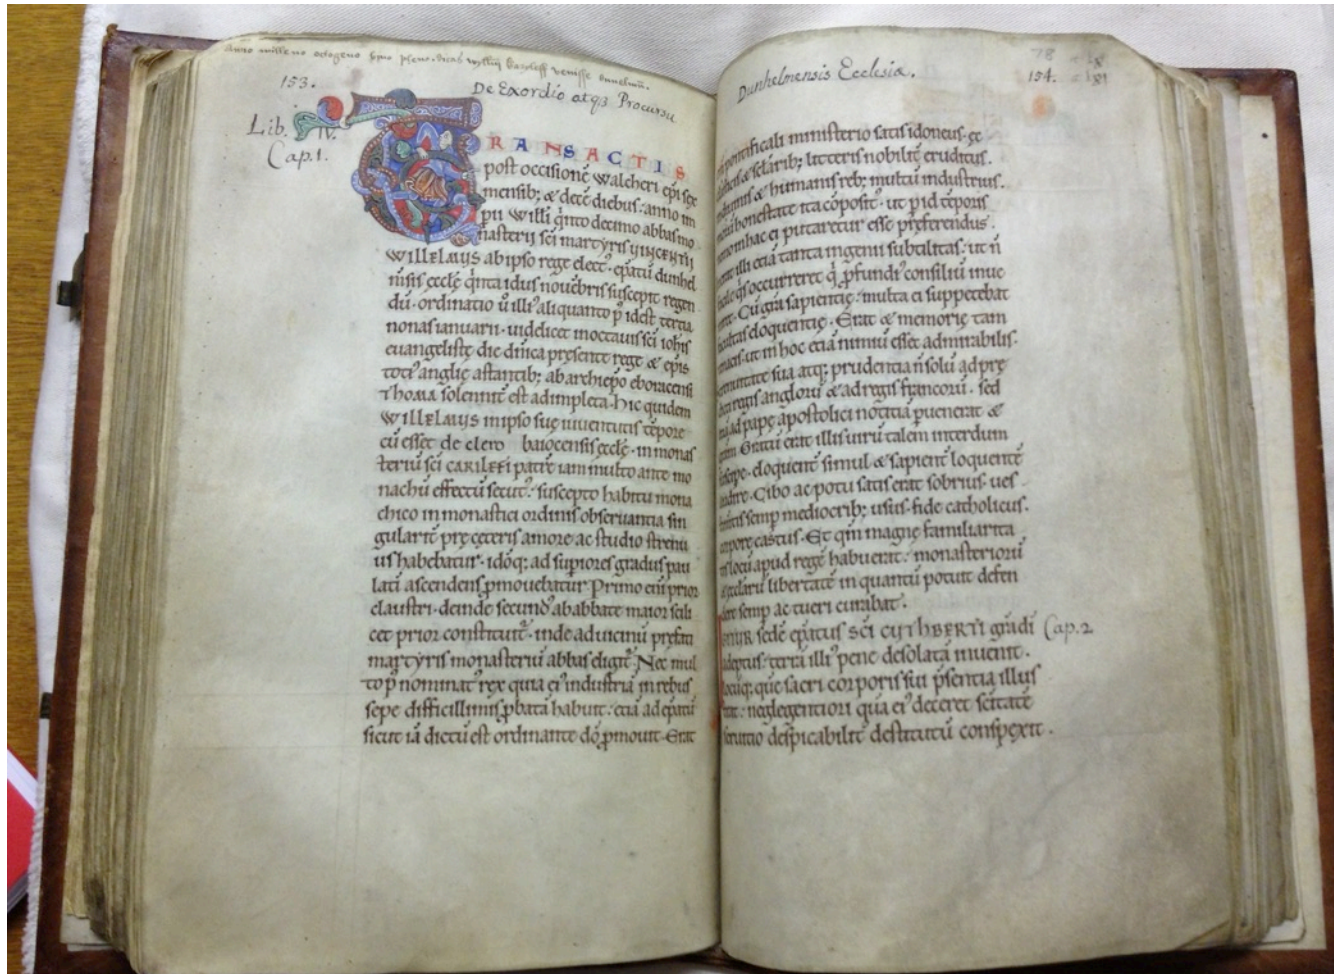 Anno milleno octogeno septimo pleno dicas venisse dunelmum.
153.
De Exordio atqꝫ Procursu
Lib. IV.
Cap. 1.
TRANSACTIS
post occisionē Walcheri ep̄i sex
mensibꝫ & decē diebus. anno im
perii Willi q̇nto decimo abbas mo
nasterii sc̄i martyris VINCENTII
WILLELMUS ab ipso rege elect᾽. ep̄atū dunhel
m̄sis eccłę q̇nta idus novēbris suscepit regen
dū. ordinatio ů illi᾽ aliquanto p᾽ id est tertia
nonas ianuarii. uidelicet in octauis sc̄i ioh̄is
euangelistę die dn̄ica pręsente rege & ep̄is
toti᾽ anglię astantibꝫ ab archiep̄o eboracensi
THOMA solenniť est adimpleta. Hic quidem
WILLELMUS in ipso suę iuuentutis tēpore
cū esset de clero baiocensis eccłę. in monas
teriū sc̄i CARILEFI patrē iam multo ante mo
nachū effectū secut᾽. suscepto habitu mona
chico in monastici ordinis obseruantia sin
gulariť pręceteris amore ac studio strenu
us habebatur. idoqꝫ ad suꝑiores gradus pau
latī ascendens ꝓmouebatur. Primo eni prior
claustri. deinde secund᾽ ab abbate maior scili
cet prior constituit᷑. inde ad uicinū pręfati
martyris monasteriū abbas eligit᷑. Nec mul
to p᾽ nominat᾽ rex quia ei᾽ industriā in rebus
sepe difficillimis ꝓbatā habuit. etiā ad ep̄atū
sicut iā dictū est ordinante dō ꝓmouit. Erat
Dunhelmensis Ecclesiæ.
154.
pontificali ministerio satis idoneus. ec
& sclaribꝫ litteris nobiliť eruditus.
& humanis rebꝫ multū industrius.
honestate ita cōposit᾽. ut ꝑ id tēporis
nemo in hac ei putaretur esse pręferendus.
illi etiā tanta ingenii subtilitas. ut n̄
q̇s occurreret q̇ ꝓfundi᾽ consiliū inue
Cū gr̄a sapientię. multa ei suppetebat
eloquentię. Erat & memorię tam
ut in hoc etiā nimiū esset admirabilis.
sua atqꝫ prudentia n̄ solū ad pre
regis anglorū & ad regis francorū. sed
ad papę apostolici notitiā ꝑuenerat &
Gratū erat illis uirū talem interdum
eloquent̄ simul & sapient̄ loquentē
Cibo ac potu satis erat sobrius. ues
semꝑ mediocribꝫ usus. fide catholicus.
corpore castus. Et qm̄ magnę familiarita
tis locū apud regē habuerat. monasteriorū
& eccłarū libertatē in quantū potuit defen
dere semp ac tueri curabat.
sedē ep̄atus SC̄I CUTHBERTI gradi
Cap. 2
adeptus. terrā illi᾽ pene desolatā inuenit.
locūqꝫ quē sacri corporis sui p̄sentia illus
trat. neglegentiori quā ei᾽ deceret sc̄itatē
seruitio despicabiliť destitutū conspexit.